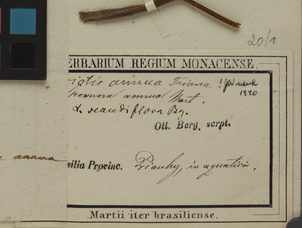 20/1
ERBARIUM REGIUM MONACENSE.
annua Triana
1970
annua Mart.
β. grandiflora Bg.
Ott. Berg, scrpt.
annua
silia Provinc. Piauhy, in aquaticis.
Martii iter brasiliense.